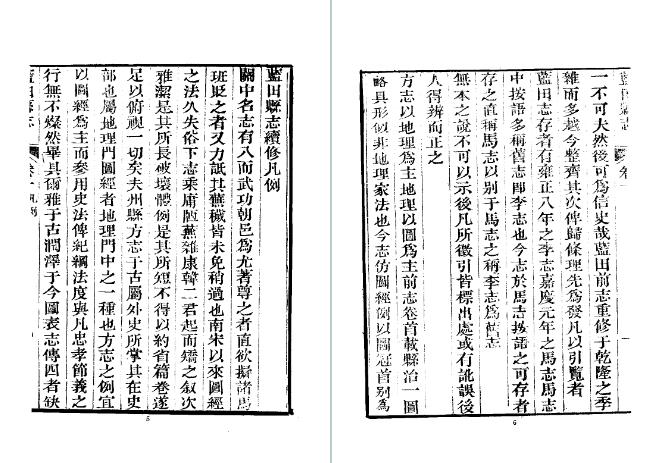 藍田縣志續修凡例
關中名志有八而武功朝邑爲尤著尊之者直欲擬諸馬
班貶之者又力詆其蕪穢皆未免稍過也南宋以來圖經
之法久失俗下志乘庸蕪雜康韓二君起而矯之叙次
雅潔是其所長破壞體例是其所短不得以約省篇卷遂
足以俯視一切矣夫州縣方志于古屬外史所掌其在史
部也屬地理門圖經者地理門中之一種也方志之例宜
以圖經爲主而參用史法俾紀綱法度與凡忠孝節義之
行無不燦然畢具爾雅于古潤澤于今圖表志傳四者缺
5
一不可夫然後可爲信史哉藍田前志重修于乾隆之季
雜而多越今整齊其次俾歸條理先爲發凡以引覽者
藍田志存者有雍正八年之李志嘉慶元年之馬志馬志
中按語多稱舊志卽李志也今志於馬志按語之可存者
存之直稱馬志以别于馬志之稱李志爲舊志
無本之說不可以示後凡所徵引皆標出處或有訛誤後
人得辨而正之
方志以地理爲主地理以圖爲主前志卷首載縣治一圖
略具形似非地理家法也今志仿圖經例以圖冠首别爲
6